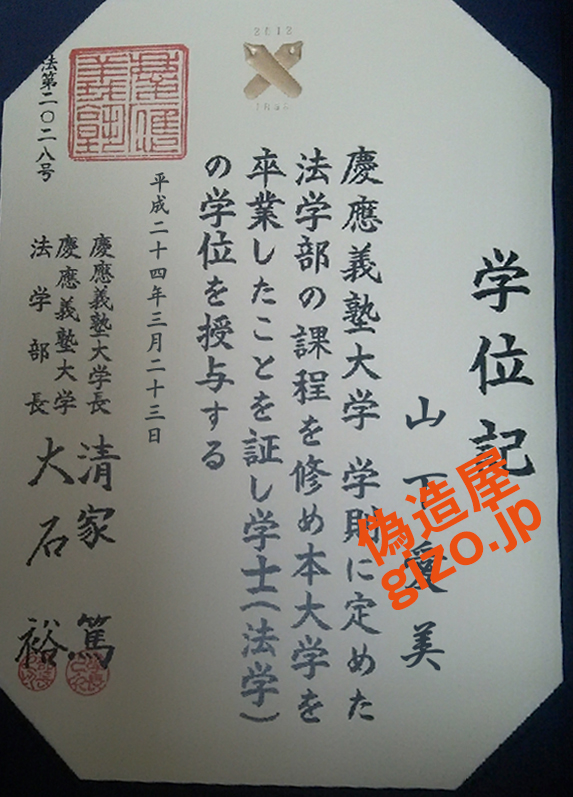 学位記
山下愛美
慶應義塾大学 学則に定めた
法学部の課程を修め本大学を
卒業したことを証し学士(法学)
の学位を授与する
平成二十四年三月二十三日
慶應義塾大学長 清家 篤
慶應義塾大学
法学部長 大石 裕
法第二〇二八号
2012
偽造屋
gizo.jp